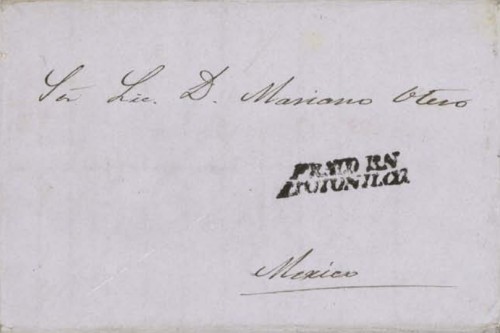 Sr. Lic. D. Mariano Otero
FRANCO EN
ATOTONILCO
Mexico